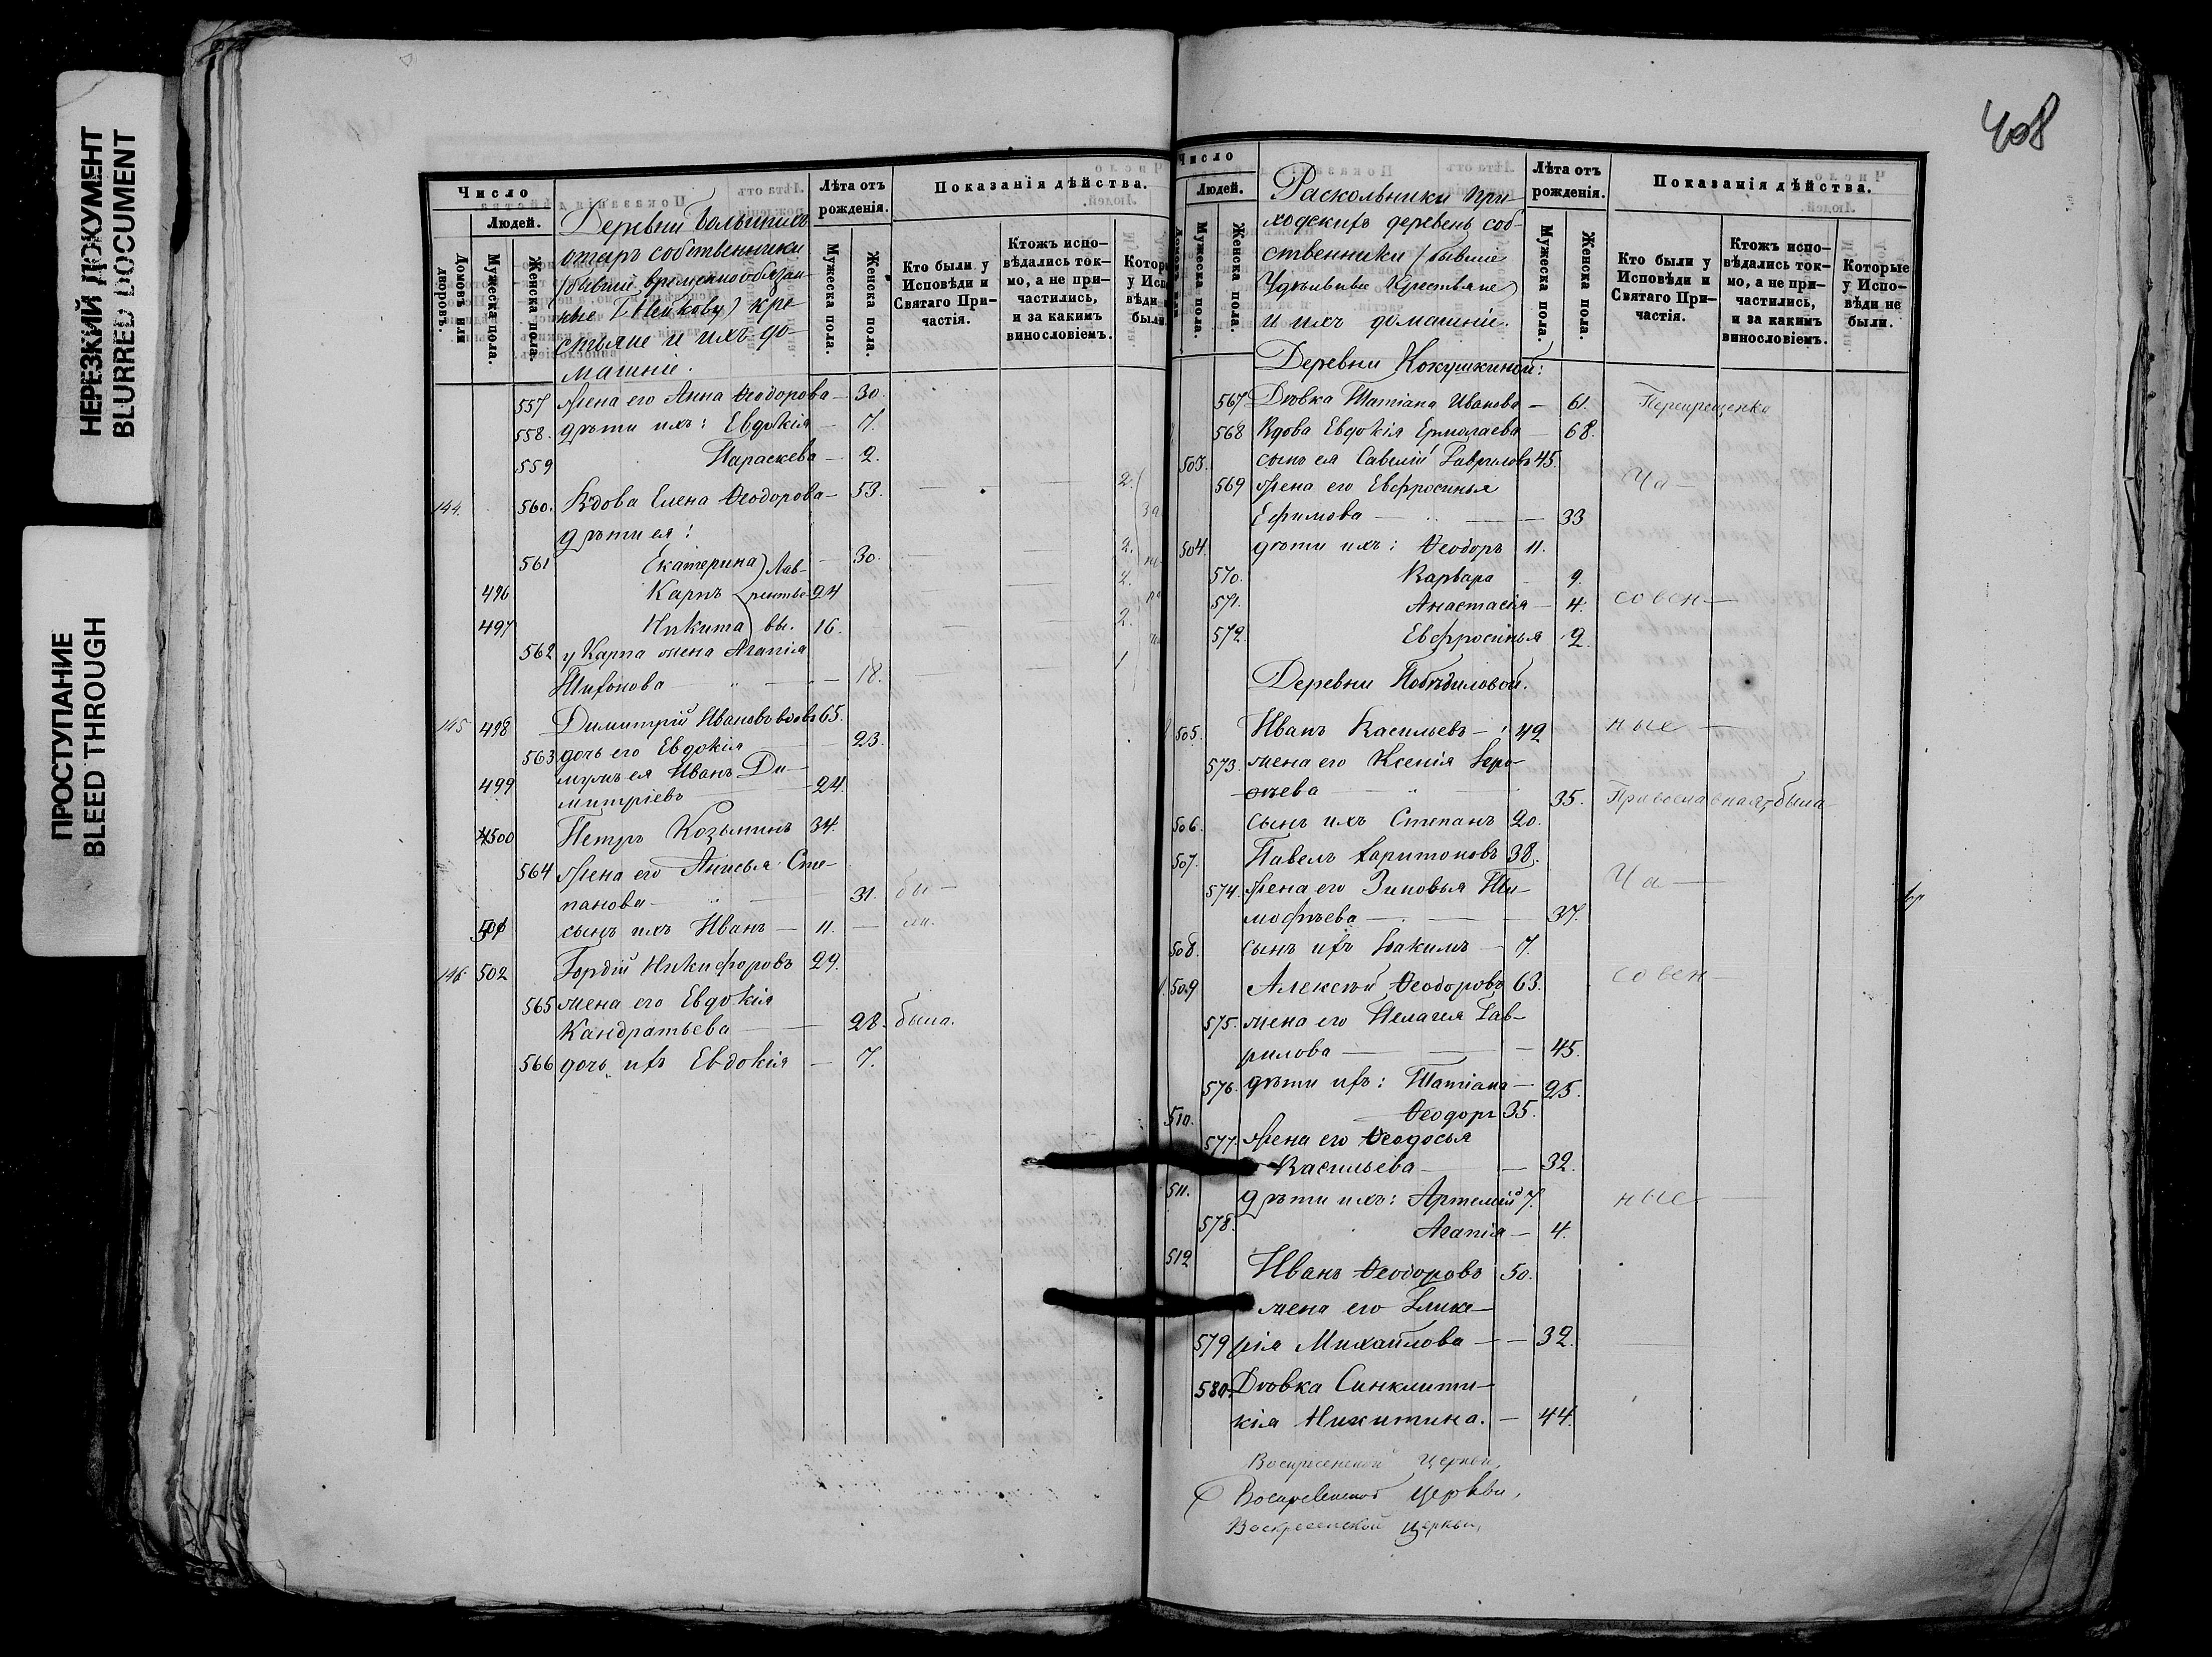 НЕРЕЗКИЙ ДОКУМЕНТ
BLURRED DOCUMENT
ПРОСТУПАНИЕ
BLEED THROUGH
Число
Людей.
Домовъ или дворовъ.
Мужеска пола.
Женска пола.
Деревни
отаръ собственники
(бывшіе временнообязан-
ные кре-
стьяне и ихъ до-
машніе.
Лѣта отъ рожденія.
Мужеска пола.
Женска пола.
Показанія дѣйства.
Кто были у Исповѣди и Святаго При-частія.
Ктожъ испо-вѣдались ток-мо, а не при-частились, и за какимъ винословіемъ.
Котор у Исп вѣди были
557 Жена его Анна Ѳеодорова — 30.
558. дѣти ихъ: Евдокія — 7.
559 Параскева — 2.
144. 560. Вдова Елена Ѳеодорова — 53. 2.
дѣти ея:
561 Екатерина) Лав- — 30. 2.
496 Карпъ рентье- 24 2.
497 Никита) вы. 16. 2.
562 у Карпа жена Агапія 1
Тихонова — 18.
145 498 Димитрій Ивановъ вдовъ 65.
563 дочь его Евдокія — 23.
499 мужъ ея Иванъ Ди-
митріевъ — 24.
500 Петръ Козьминъ 34.
564 Жена его Анисья Сте-
панова — 31. бы —
501 сынъ ихъ Иванъ — 11. — ли.
146 502 Гордій Никифоровъ 29.
565 жена его Евдокія
Кандратьева — 28. была.
566 дочь ихъ Евдокія — 7.
408
Число
Людей.
Мужеска пола.
Женска пола.
Раскольники при-
ходскихъ деревень соб-
ственники (бывшіе
Удѣльные Крестьяне)
и ихъ домашніе.
Лѣта отъ рожденія.
Мужеска пола.
Женска пола.
Показанія дѣйства.
Кто были у Исповѣди и Святаго При-частія.
Ктожъ испо-вѣдались ток-мо, а не при-частились, и за какимъ винословіемъ.
Которые у Испо-вѣди не были.
Деревни Кокушкиной:
567 Дѣвка Татіана Иванова — 61.
568 Вдова Евдокія Ермолаева — 68.
503. сынъ ея Савелій Гавриловъ 45.
569 Жена его Евфросинья Ча —
Ефимова — 33
504. дѣти ихъ: Ѳеодоръ 11.
570. Варвара — 9.
571. Анастасія — 4. совен —
572. Евфросинья 2.
Деревни Побѣдиловой.
505. Иванъ Васильевъ — 42 ные —
573. жена его Ксенія
— 35. Православная, была
506. сынъ ихъ Степанъ 20.
507. Павелъ Харитоновъ 38.
574. Жена его Зиновья Ти- Ча —
мофѣева — 37.
508. сынъ ихъ Іоакимъ — 7.
509 Алексѣй Ѳеодоровъ 63. совен —
575. жена его Пелагея Гав-
рилова — 45.
576. дѣти ихъ: Татіана — 25.
510. Ѳеодоръ 35.
577. Жена его Ѳеодосья
Васильева — 32.
511. дѣти ихъ: Артемій 7. ные —
578. Агапія — 4.
512 Иванъ Ѳеодоровъ 50.
жена его Глике-
579 рія Михайлова — 32.
580. Дѣвка Синклити-
кія Никитина. — 44.
Воскресенской Церкви,
Воскресенской церкви,
Воскресенской церкви,